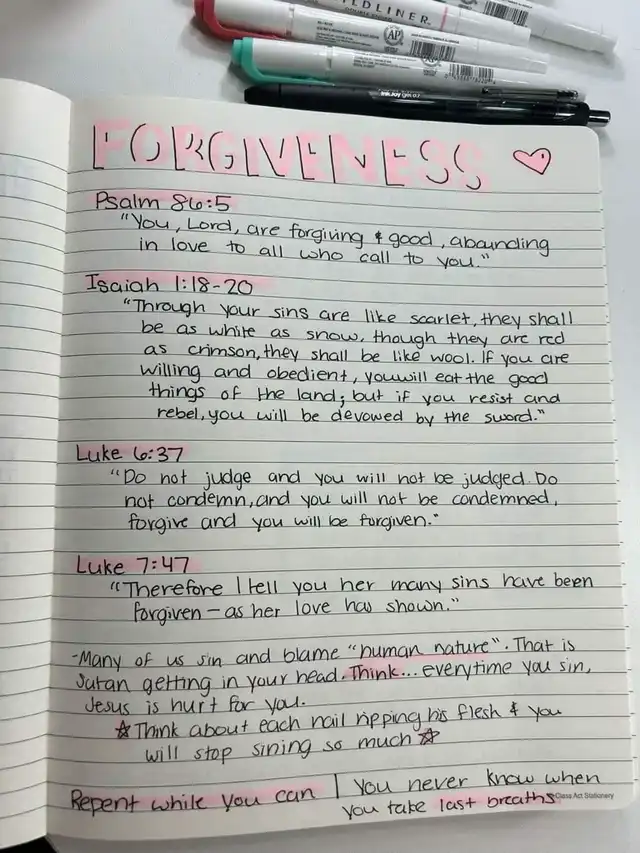 ILDLINER
AP
AP
InkJoy gel 0.7
FORGIVENESS
Psalm 86:5
"You, Lord, are forgiving & good, abounding
in love to all who call to you."
Isaiah 1:18-20
"Through your sins are like scarlet, they shall
be as white as snow, though they are red
as crimson, they shall be like wool. If you are
willing and obedient, you will eat the good
things of the land; but if you resist and
rebel, you will be devowed by the sword."
Luke 6:37
"Do not judge and you will not be judged. Do
not condemn, and you will not be condemned,
forgive and you will be forgiven."
Luke 7:47
"Therefore I tell you her many sins have been
forgiven – as her love has shown."
-Many of us sin and blame "human nature". That is
Satan getting in your head. Think... everytime you sin,
Jesus is hurt for you.
☆Think about each nail ripping his flesh & you
will stop sining so much☆
Repent while you can | You never know when
you take last breaths
Class Act Stationery